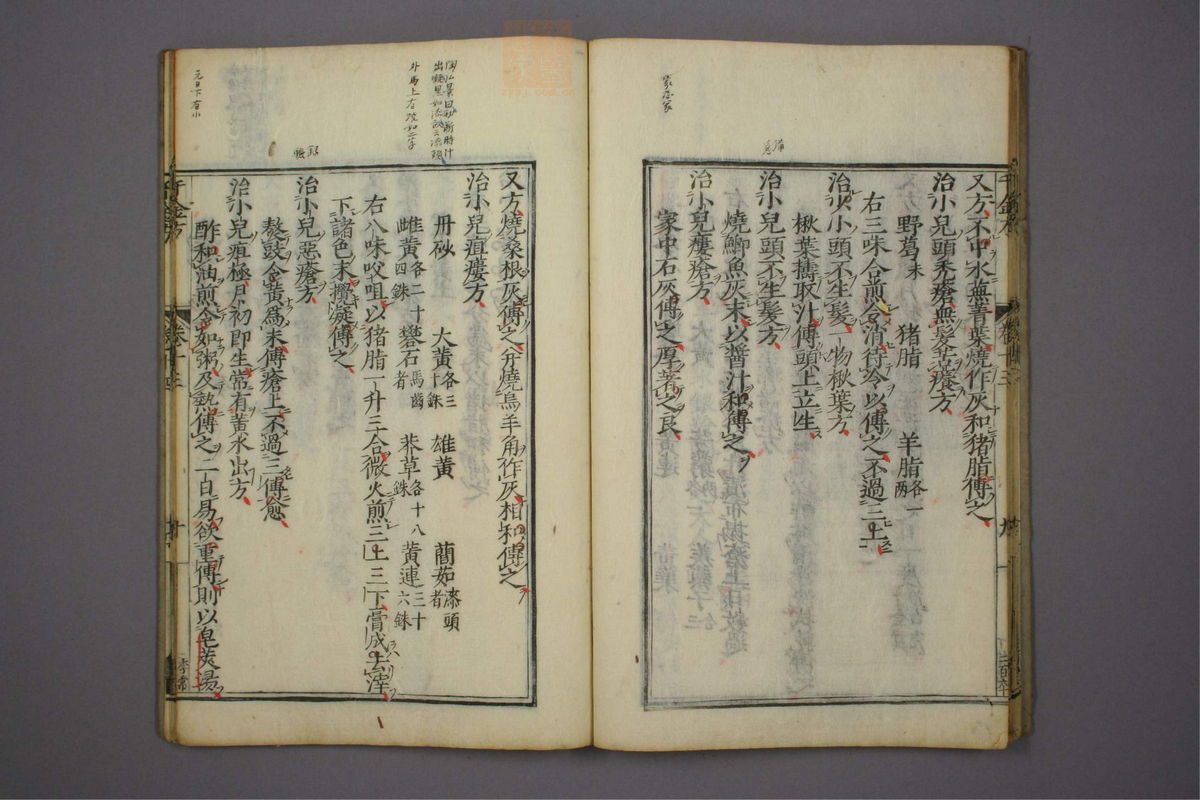 又方不中水蕪菁葉燒作灰和猪脂傅之
治小兒頭禿瘡無髮苦癢方
野葛末 猪脂 羊脂各一兩
右三味合煎令消待冷以傅之不過三上
治少小頭不生髮一物楸葉方
楸葉擣取汁傅頭上立生
治小兒頭不生髮方
燒鯽魚灰末以醬汁和傅之
治小兒瘻瘡方
冢中石灰傅之厚著之良
又方燒桑根灰傅之并燒烏羊角作灰相和傅之
治小兒疽瘻方
丹砂 大黃各三十銖 雄黃 䕡茹漆頭者
雌黃各二十四銖 礬石馬齒者 莽草各十八銖 黃連三十六銖
右八味㕮咀以猪脂一升三合微火煎三上三下膏成去滓
下諸色末攪凝傅之
治小兒惡瘡方
熬豉令黃爲末傅瘡上不過三傅愈
治小兒疽極月初即生常有黃水出方
酢和油煎令如粥及熱傅之二日易欲重傅則以皂莢湯
千金方
元日下有小